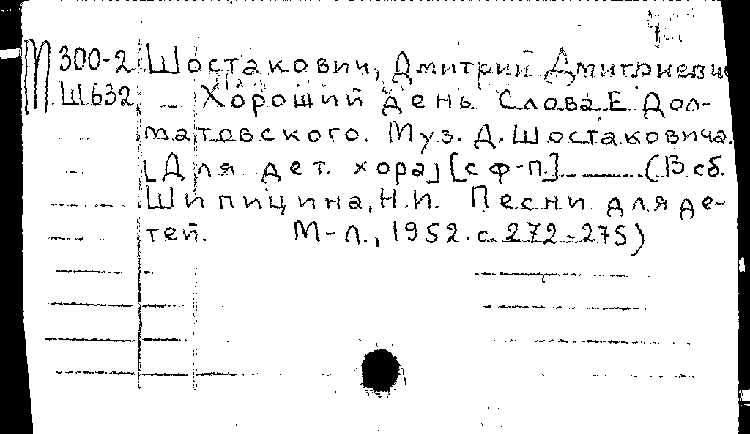 М 300-2 Шостакович, Дмитрий Дмитриевич
Ш632 Хороший день. Слова Е. Дол-
матовского. Муз. Д. Шостаковича.
[Для дет. хора] [с ф-п.] (В сб.
Шипицина, Н.И. Песни для де-
тей. М-Л., 1952. с. 272-275)